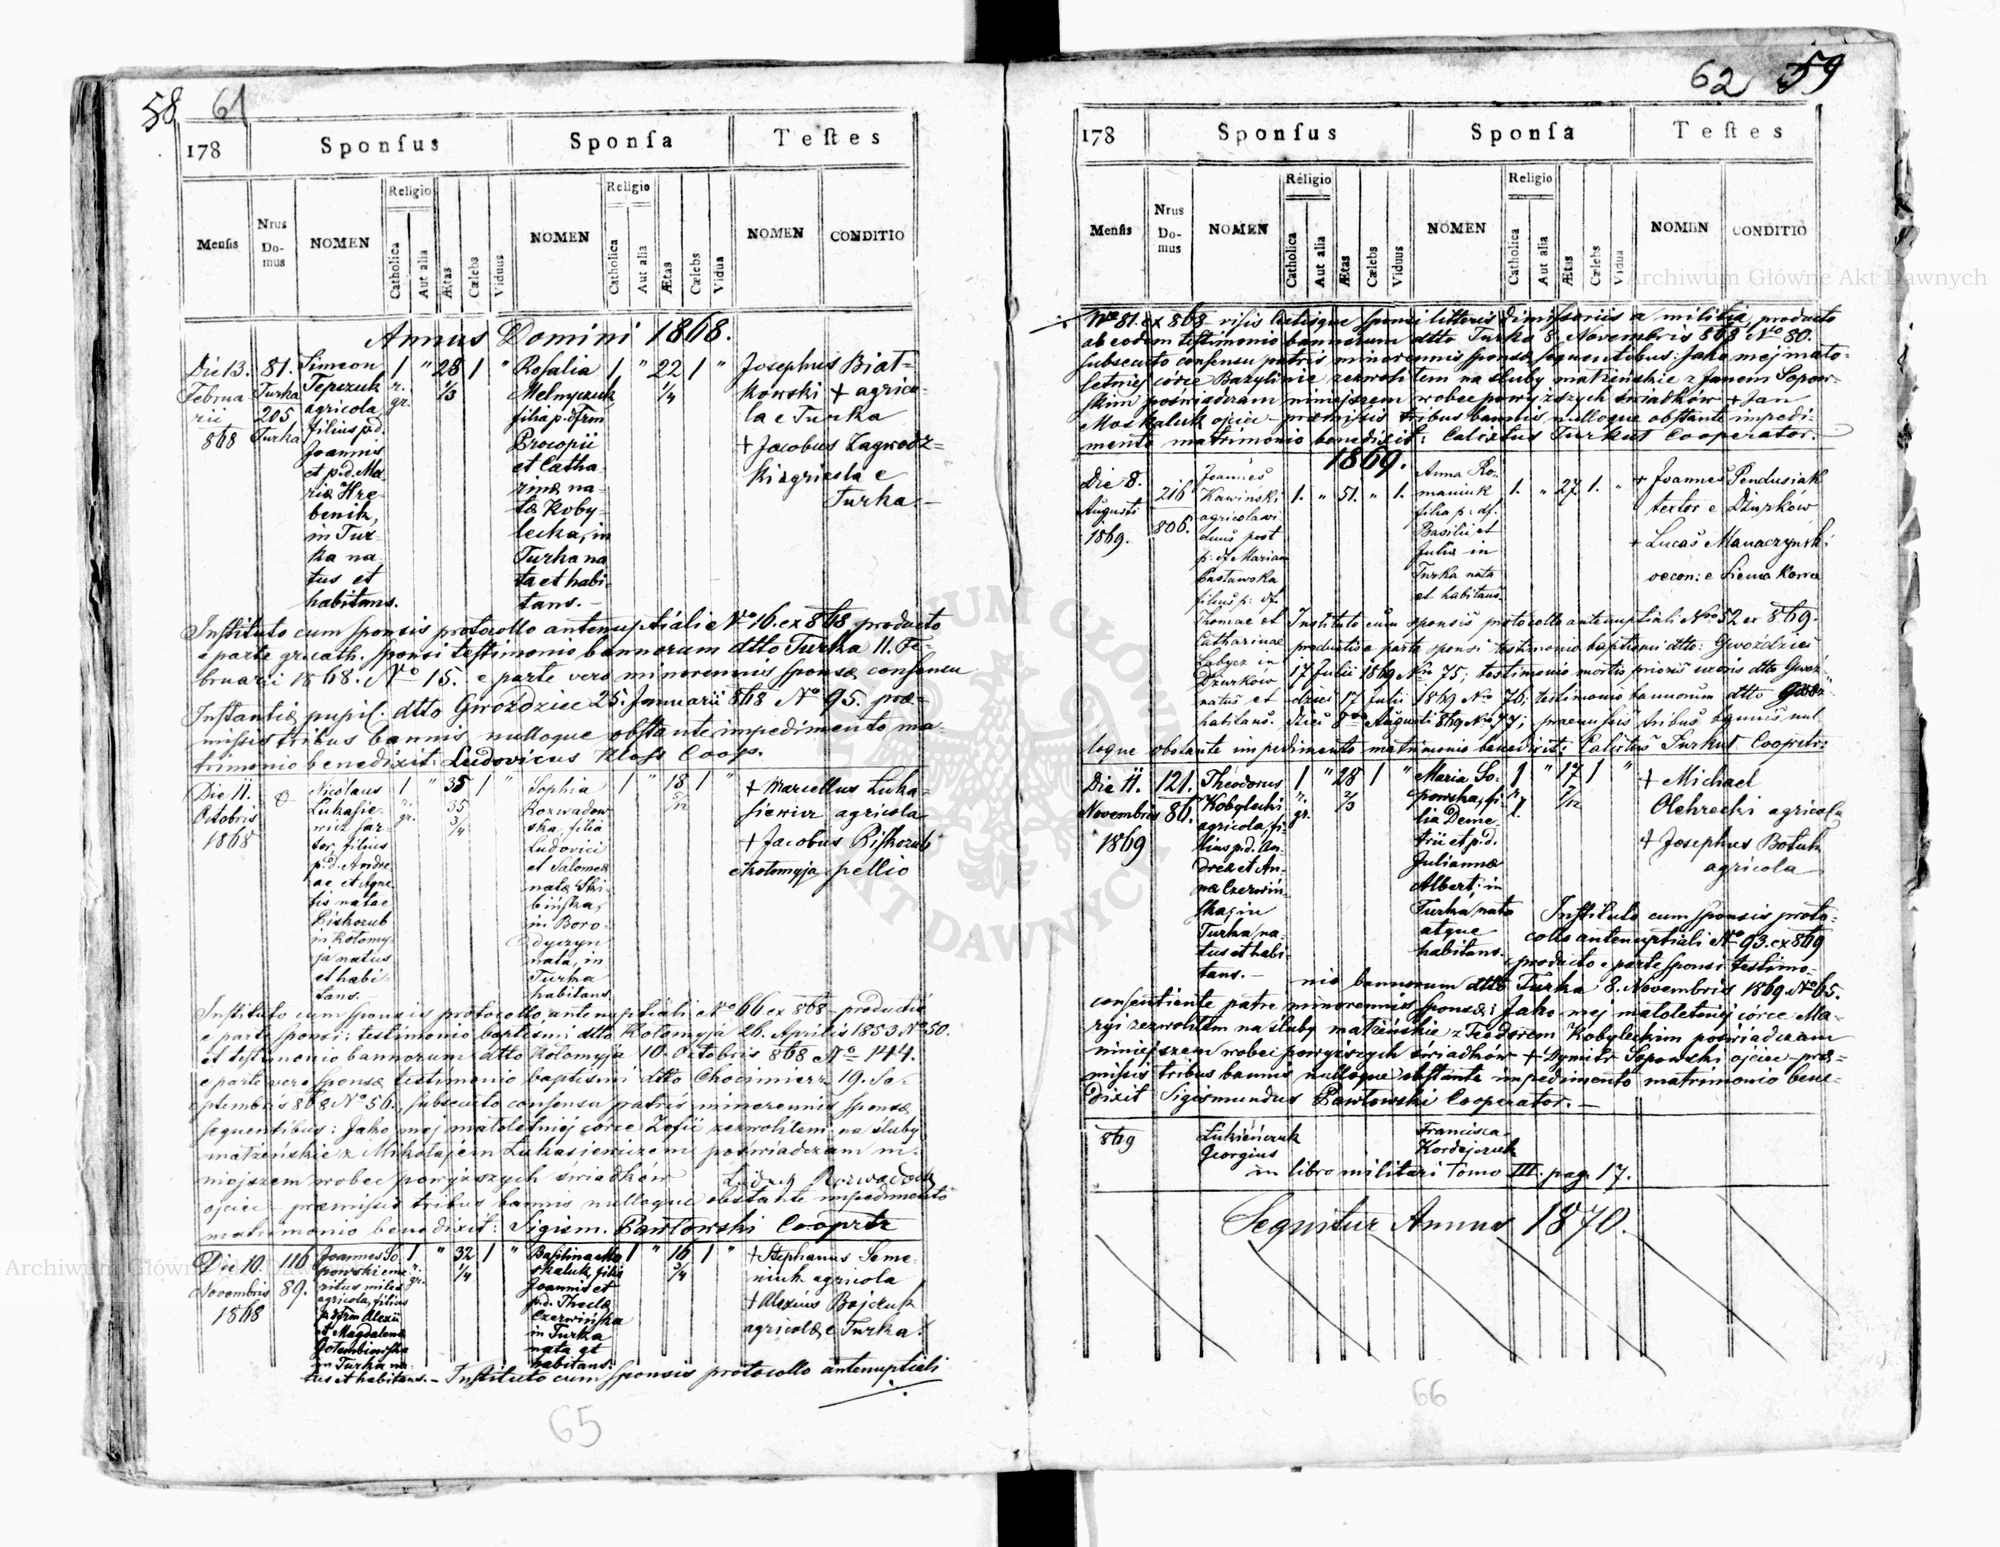 58 61
178 Sponſus Sponſa Teſtes
Menſis Nrus Domus NOMEN Religio Catholica Aut alia Ætas Cælebs Viduus NOMEN Religio Catholica Aut alia Ætas Cælebs Vidua NOMEN CONDITIO
Annus Domini 1868.
Die 13.
Februa
rii
868
81.
Turka
205
Turka
Simeon
Tepczuk
agricola
filius p.d.
Joannis
et p.d. Ma
riæ Hre
benik,
in Tur-
ka na
tus et
habitans.
1 " 28 1 "
r. gr. 1/3
Rosalia
Melnyczuk
filia p. dfrm
Procopii
et Catha-
rinæ na-
tæ Koby-
lecka, in
Turka na
ta et habi
tans.-
1 " 22 1 "
1/4
Josephus Biat-
kowski + agrico-
la e Turka
+ Jacobus Zagrodz-
ki agricola e
Turka.-
Inſtituto cum ſponsis protocollo antenuptiali No 16. ex 868 producto
e parte gr. cath. ſponsi teſtimonio bannorum dtto Turka 11. Fe-
bruarii 1868. No 15. e parte vero minorennis ſponsæ consensu
Inſtantiæ pupil. dtto Gwoździec 25. Januarii 868 No 95. præ-
missis tribus bannis, nulloque obſtante impedimento ma-
trimonio benedixit Ludovicus Kloſs Coop.
Die 11.
Octobris
1868
Nicolaus
Lukasie-
wicz sar
tor, filius
p.d. Andre
ae et Agne
tis natae
Piskozub
in Kołomy
ja natus
et habi-
tans.
1 " 35 1 "
r. gr. 35 3/4
Sophia
Rozwadow
ska, filia
Ludovici
et Salomeæ
natæ Ski-
bińska,
in Boro-
dyczyn
nata, in
Turka
habitans
1 " 18 1 "
5/12
+ Marcellus Luka-
siewicz agricola
+ Jacobus Piſkozub
e Kołomyja pellio
Inſtituto cum ſponsis protocollo antenuptiali No 66 ex 868 - productis
e parte ſponsi: testimonio baptismi dtto Kołomyja 26. Aprilis 1853 No 50.
et teſtimonio bannorum dtto Kołomyja 10. Octobris 868 No 144.
e parte vero ſponsæ testimonio baptismi dtto Chocimierz 19. Se-
ptembris 868 No 56. subsecuto consensu patris minorennis ſponsæ
sequentibus: Jako mej małoletniej córce Zofii zezwoliłem na śluby
małżeńskie z Mikołajem Łukasiewiczem poświadczam ni-
niejszem wobec powyższych świadków Ludwik Rozwadowski
ojciec - præmissis tribus bannis nulloque obstante impedimento
matrimonio benedixit: Sigism. Pawłowski Cooprtr
Die 10.
Novembris
1868
116
89.
Joannes So-
powski eme
ritus miles
agricola, filius
p. dfrm Alexii
et Magdalenæ
Gołembiowska
in Turka na-
tus et habitans.-
1 " 32 1 "
r. gr. 1/4
Basilina Mo
skaluk, filia
Joannis et
p.d. Theclæ
Czerwińska
in Turka
nata et
habitans.
1 " 16 1 "
3/4
+ Stephanus Seme-
niuk agricola
+ Alexius Bojczuk
agricolæ e Turka.
Inſtituto cum ſponsis protocollo antenuptiali
65
62 59
178 Sponſus Sponſa Teſtes
Menſis Nrus Domus NOMEN Religio Catholica Aut alia Ætas Cælebs Viduus NOMEN Religio Catholica Aut alia Ætas Cælebs Vidua NOMEN CONDITIO
No 81. ex 868 visis lectisque ſponsi litteris dimiſsoriis a militia, producto
ab eodem teſtimonio bannorum dtto Turka 8. Novembris 868 No 80.
subsecuto consensu patris minorennis ſponsæ sequentibus: Jako mej mało-
letniej córce Bazylinie zezwoliłem na śluby małżeńskie z Janem Sopow-
skim poświadczam niniejszem wobec powyższych świadków + Jan
Moskaluk ojciec - præmiſsis tribus bannis nulloque obſtante impedi-
mento matrimonio benedixit: Calixtus Turkut Cooperator.-
1869.
Die 8.
Augusti
1869.
216
806.
Joannes
Kawiński
agricola vi
duus post
p: df. Mariam
Pastawska
filius p: df.
Thomae et
Catharinae
Łabycz in
Dżurków
natus et
habitans.
1. " 51. " 1.
Anna Ro-
maniuk
filia p: df.
Basilii et
Juliæ in
Turka nata
et habitans.
1. " 27. 1. "
+ Joannes Pendusiak
textor e Dżurków
+ Lucas Manaczyński
oecon: e Siemakowce
Instituto cum sponsis protocollo antenuptiali Nro 52 ex 869.
productis e parte sponsi testimonio baptismi dtto: Gwoździec
17 Julii 1869 Nro 75; testimonio mortis prioris uxoris dtto Gwoź-
dziec 17 Julii 1869 Nro 76; testimonio bannorum dtto Gwoź-
dziec 8va Augusti 869 Nro 77; praemissis tribus bannis nul
loque obstante impedimento matrimonio benedixit: Calixtus Turkut Cooprtr:
Die 11.
Novembris
1869
121.
86.
Theodorus
Kobylecki
agricola, fi-
lius p.d. An
dreæ et An-
næ Czerwiń
ska, in
Turka na-
tus et habi-
tans.-
1 " 28 1 "
r. gr. 2/3
Maria So-
powska, fi-
lia Deme
trii et p.d.
Juliannæ
Albert: in
Turka nata
atque
habitans.
1 " 17 1 "
7/12
+ Michael
Olchrecki agricola
+ Josephus Botuk
agricola
Inſtituto cum ſponsis proto-
collo antenuptiali No 93. ex 869
producto e parte ſponsi testimo-
nio bannorum dtto Turka 8. Novembris 1869 No 65.
consentiente patre minorennis ſponsæ: Jako mej małoletniej córce Ma-
ryi zezwoliłem na śluby małżeńskie z Teodorem Kobyleckim poświadczam
niniejszem wobec powyższych świadków + Dymitr Sopowski ojciec - præ-
miſsis tribus bannis nulloque obſtante impedimento matrimonio bene-
dixit Sigismundus Pawłowski Cooperator.-
869
Lukieńczuk
Georgius
Francisca
Kordejczuk
in libro militari Tomo III. pag. 17.
Sequitur Annus 1870.
66
Archiwum Główne Akt Dawnych